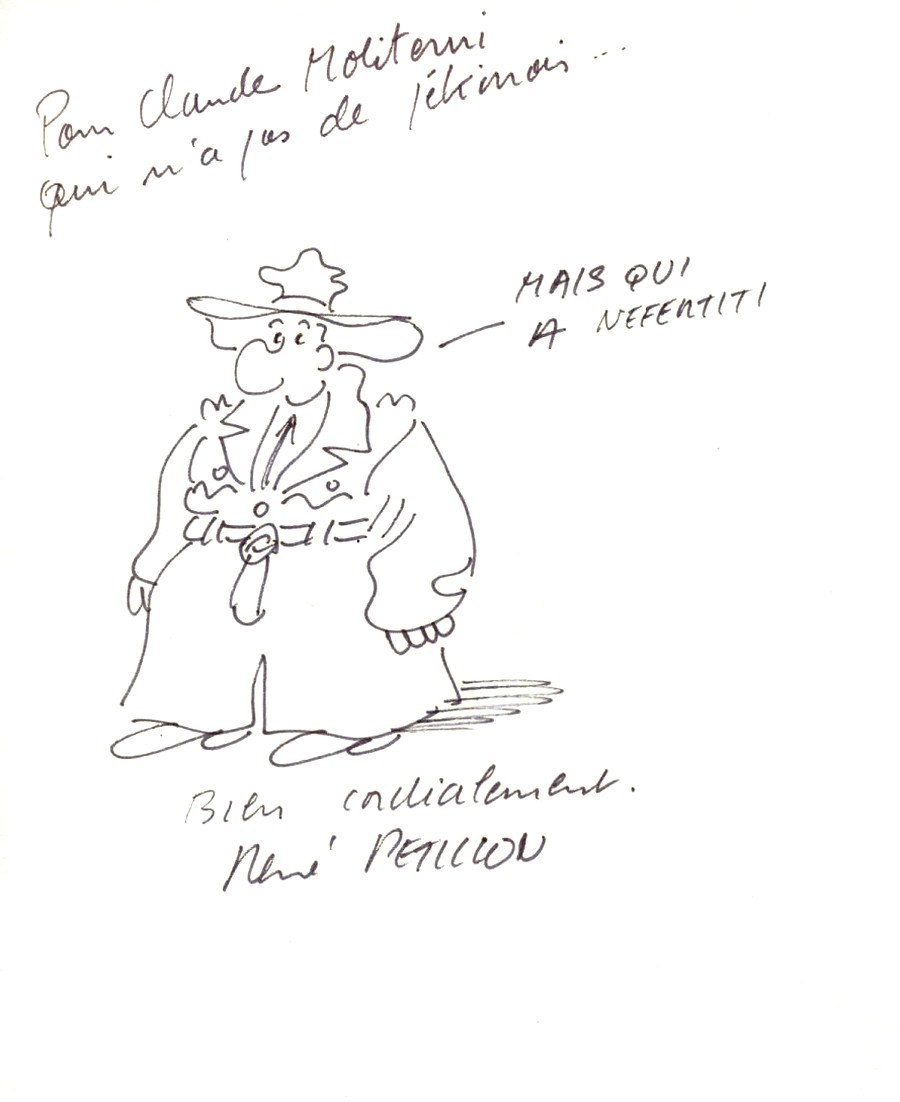 Pour Claude Moliterni
qui n'a pas de pékinois...
MAIS QUI
A NEFERTITI
Bien cordialement.
René PETILLON